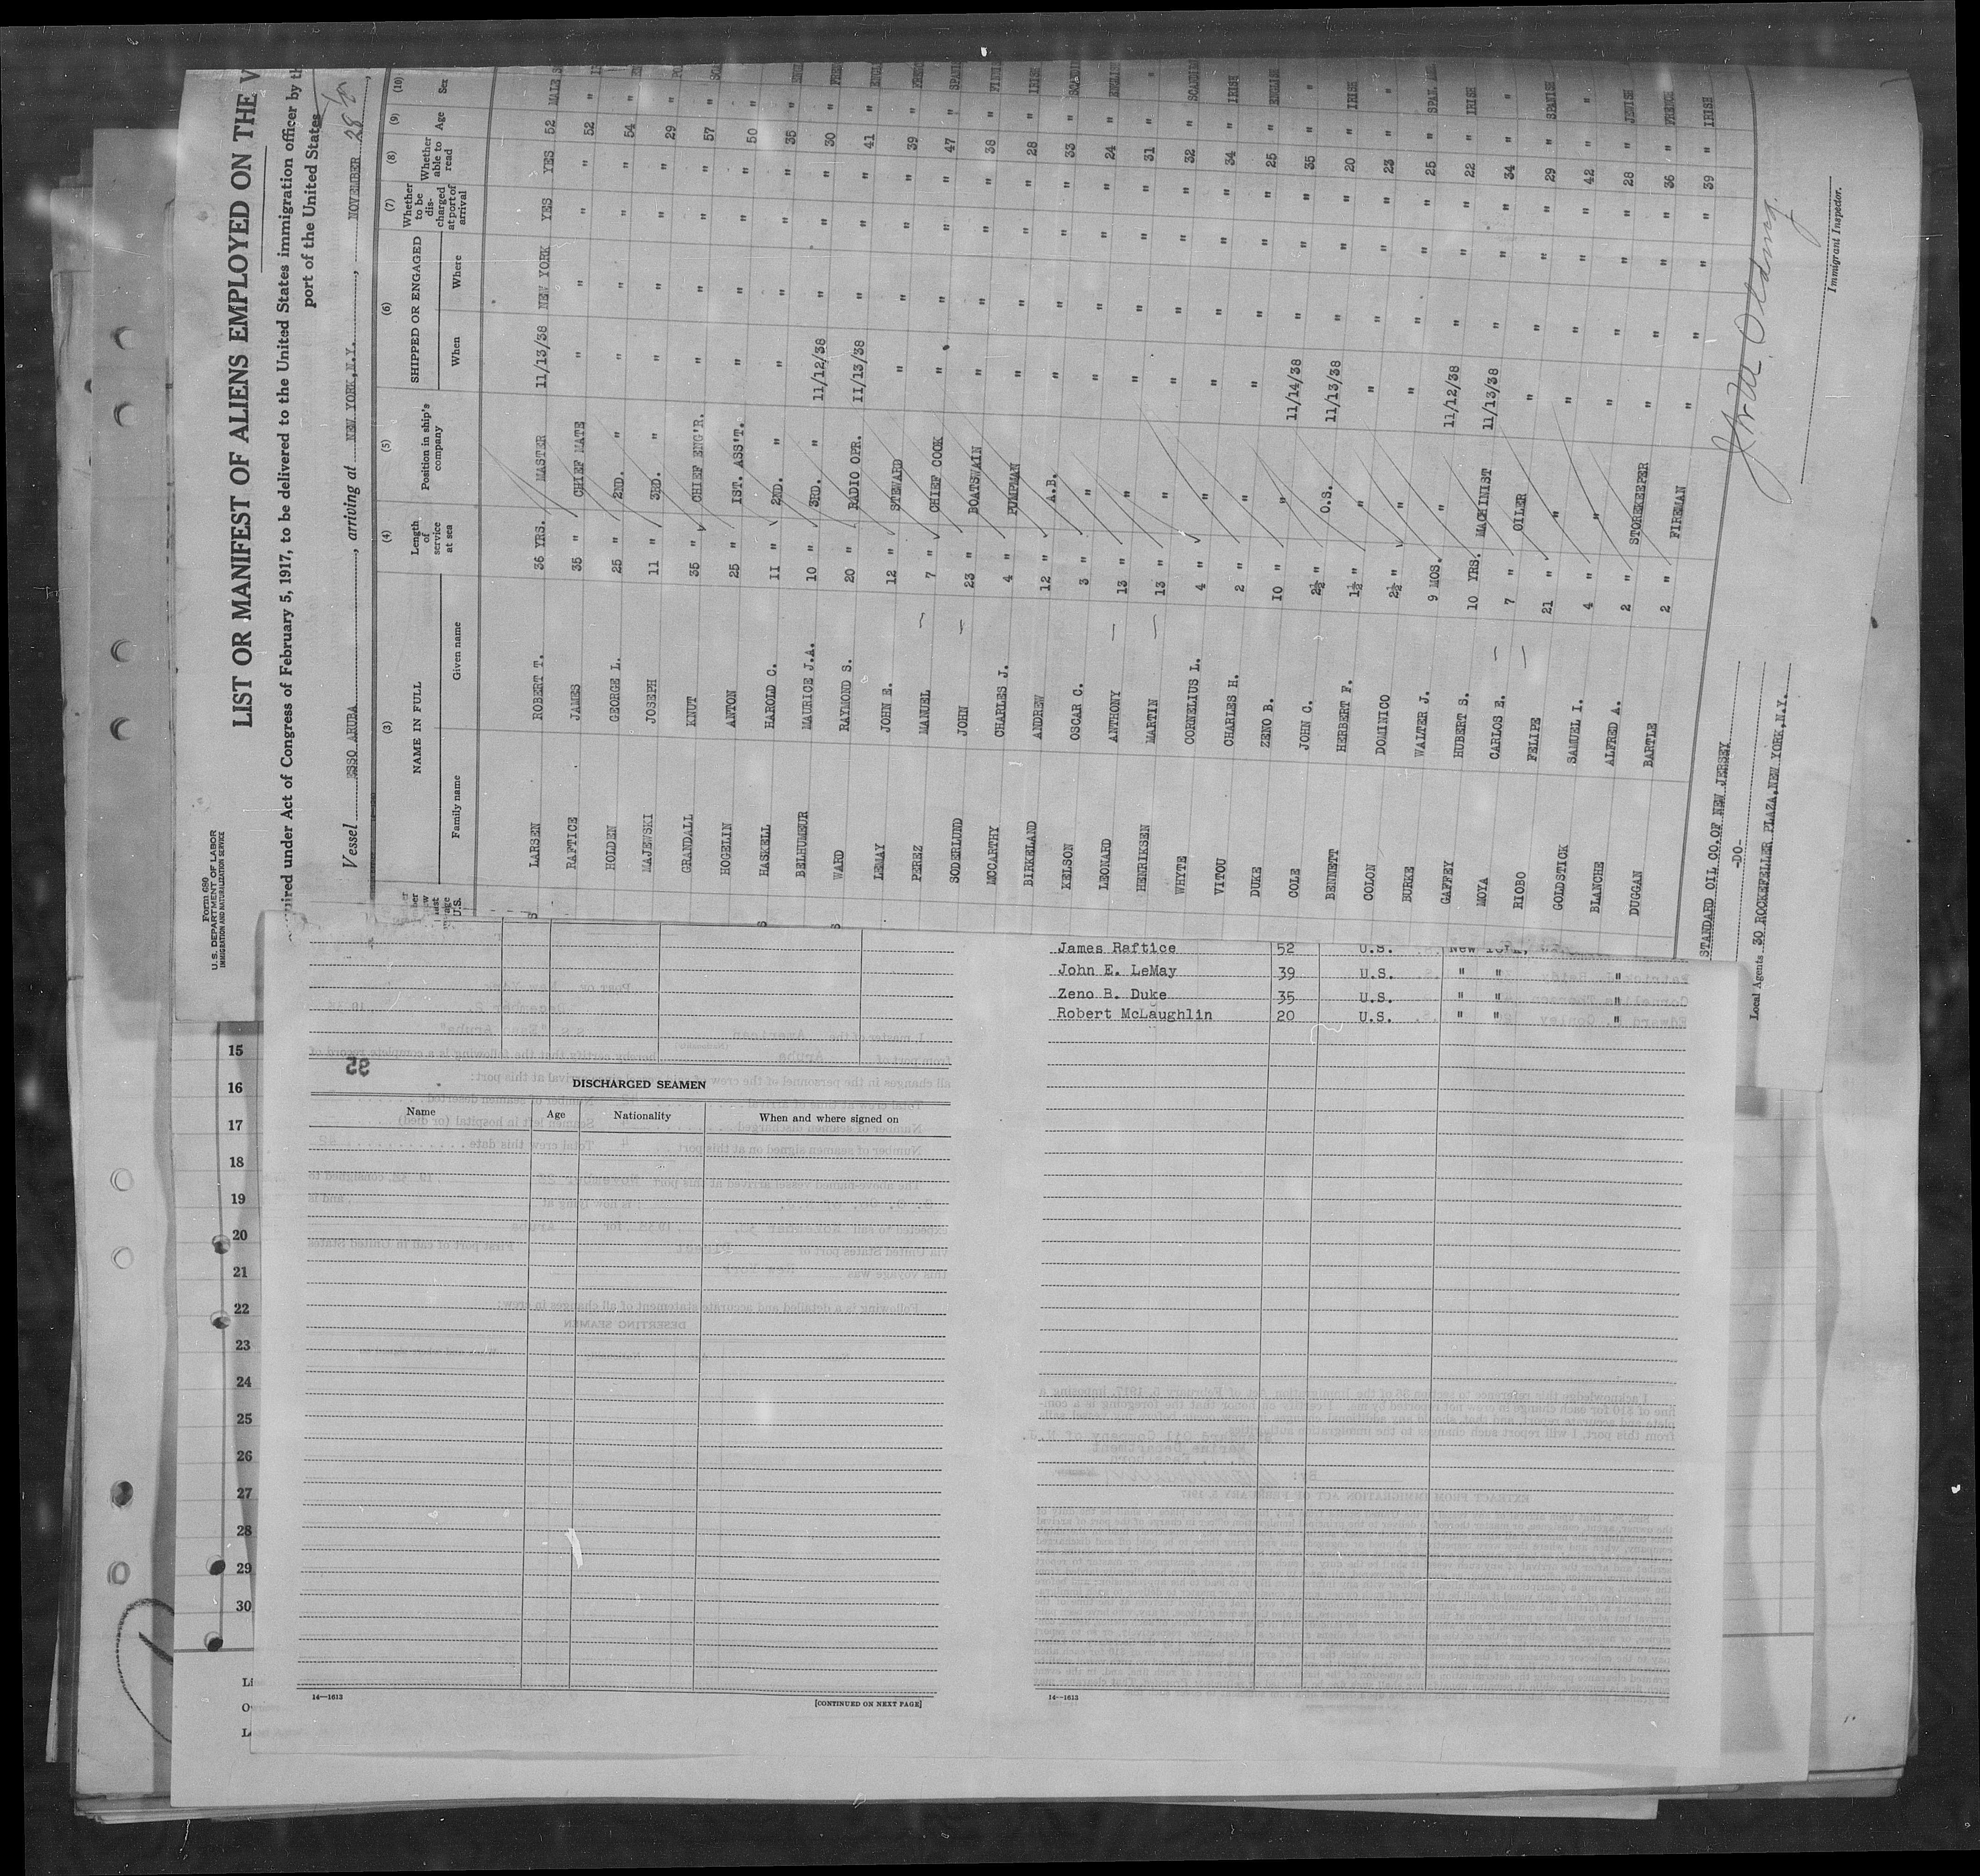 Form 680
U. S. DEPARTMENT OF LABOR
IMMIGRATION AND NATURALIZATION SERVICE
LIST OR MANIFEST OF ALIENS EMPLOYED ON THE V
uired under Act of Congress of February 5, 1917, to be delivered to the United States immigration officer by th
port of the United States
Vessel ESSO ARUBA, arriving at NEW YORK, N.Y., NOVEMBER 28
(3) (4) (5) (6) (7) (8) (9) (10)
NAME IN FULL Length of service at sea Position in ship's company SHIPPED OR ENGAGED Whether to be discharged at port of arrival Whether able to read Age Sex
Family name Given name When Where
LARSEN ROBERT T. 36 YRS. MASTER 11/13/38 NEW YORK YES YES 52 MALE
RAFTICE JAMES 35 " CHIEF MATE " " " " 52 "
HOLDEN GEORGE L. 25 " 2ND. " " " " " 54 "
MAJEWSKI JOSEPH 11 " 3RD. " " " " " 29 "
GRANDALL KNUT 35 " CHIEF ENG'R. " " " " 57 "
HOGELIN ANTON 25 " 1ST. ASS'T. " " " " 50 "
HASKELL HAROLD C. 11 " 2ND. " " " " " 35 "
BELHUMEUR MAURICE J.A. 10 " 3RD. " 11/12/38 " " " 30 "
WARD RAYMOND S. 20 " RADIO OPR. 11/13/38 " " " 41 "
LEMAY JOHN E. 12 " STEWARD " " " " 39 "
PEREZ MANUEL — 7 " CHIEF COOK " " " " 47 "
SODERLUND JOHN — 23 " BOATSWAIN " " " " 38 "
MCCARTHY CHARLES J. 4 " PUMPMAN " " " " 28 " IRISH
BIRKELAND ANDREW 12 " A.B. " " " " 33 "
KELSON OSCAR C. 3 " " " " " " 24 "
LEONARD ANTHONY — 13 " " " " " " 31 " "
HENRIKSEN MARTIN — 13 " " " " " " 32 "
WHYTE CORNELIUS L. 4 " " " " " " 34 " IRISH
VITOU CHARLES H. 2 " " " " " " 25 " ENGLISH
DUKE ZENO B. 10 " " " " " " 35 " "
COLE JOHN C. 2½ " O.S. 11/14/38 " " " 20 " IRISH
BENNETT HERBERT F. 1½ " " 11/13/38 " " " 23 " "
COLON DOMINICO 2½ " " " " " " 25 " SPAN. AM.
BURKE WALTER J. 9 MOS. " " " " " 22 " IRISH
GAFFEY HUBERT S. 10 YRS. MACHINIST 11/12/38 " " " 34 " "
MOYA CARLOS E. — 7 " OILER 11/13/38 " " " 29 " SPANISH
RIOBO FELIPE — 21 " " " " " " 42 " "
GOLDSTICK SAMUEL I. 4 " " " " " " 28 " JEWISH
BLANCHE ALFRED A. 2 " STOREKEEPER " " " " 36 " FRENCH
DUGGAN BARTLE 2 " FIREMAN " " " " 39 " IRISH
STANDARD OIL CO. OF NEW JERSEY
-DO-
Local Agents 30 ROCKEFELLER PLAZA, NEW YORK, N.Y.
Immigrant Inspector.
James Raftice 52 U.S. New York,
John E. LeMay 39 U.S. " " "
Zeno B. Duke 35 U.S. " " "
Robert McLaughlin 20 U.S. " " "
DISCHARGED SEAMEN
Name Age Nationality When and where signed on
14—1613
[CONTINUED ON NEXT PAGE]
14—1613
15
16
17
18
19
20
21
22
23
24
25
26
27
28
29
30